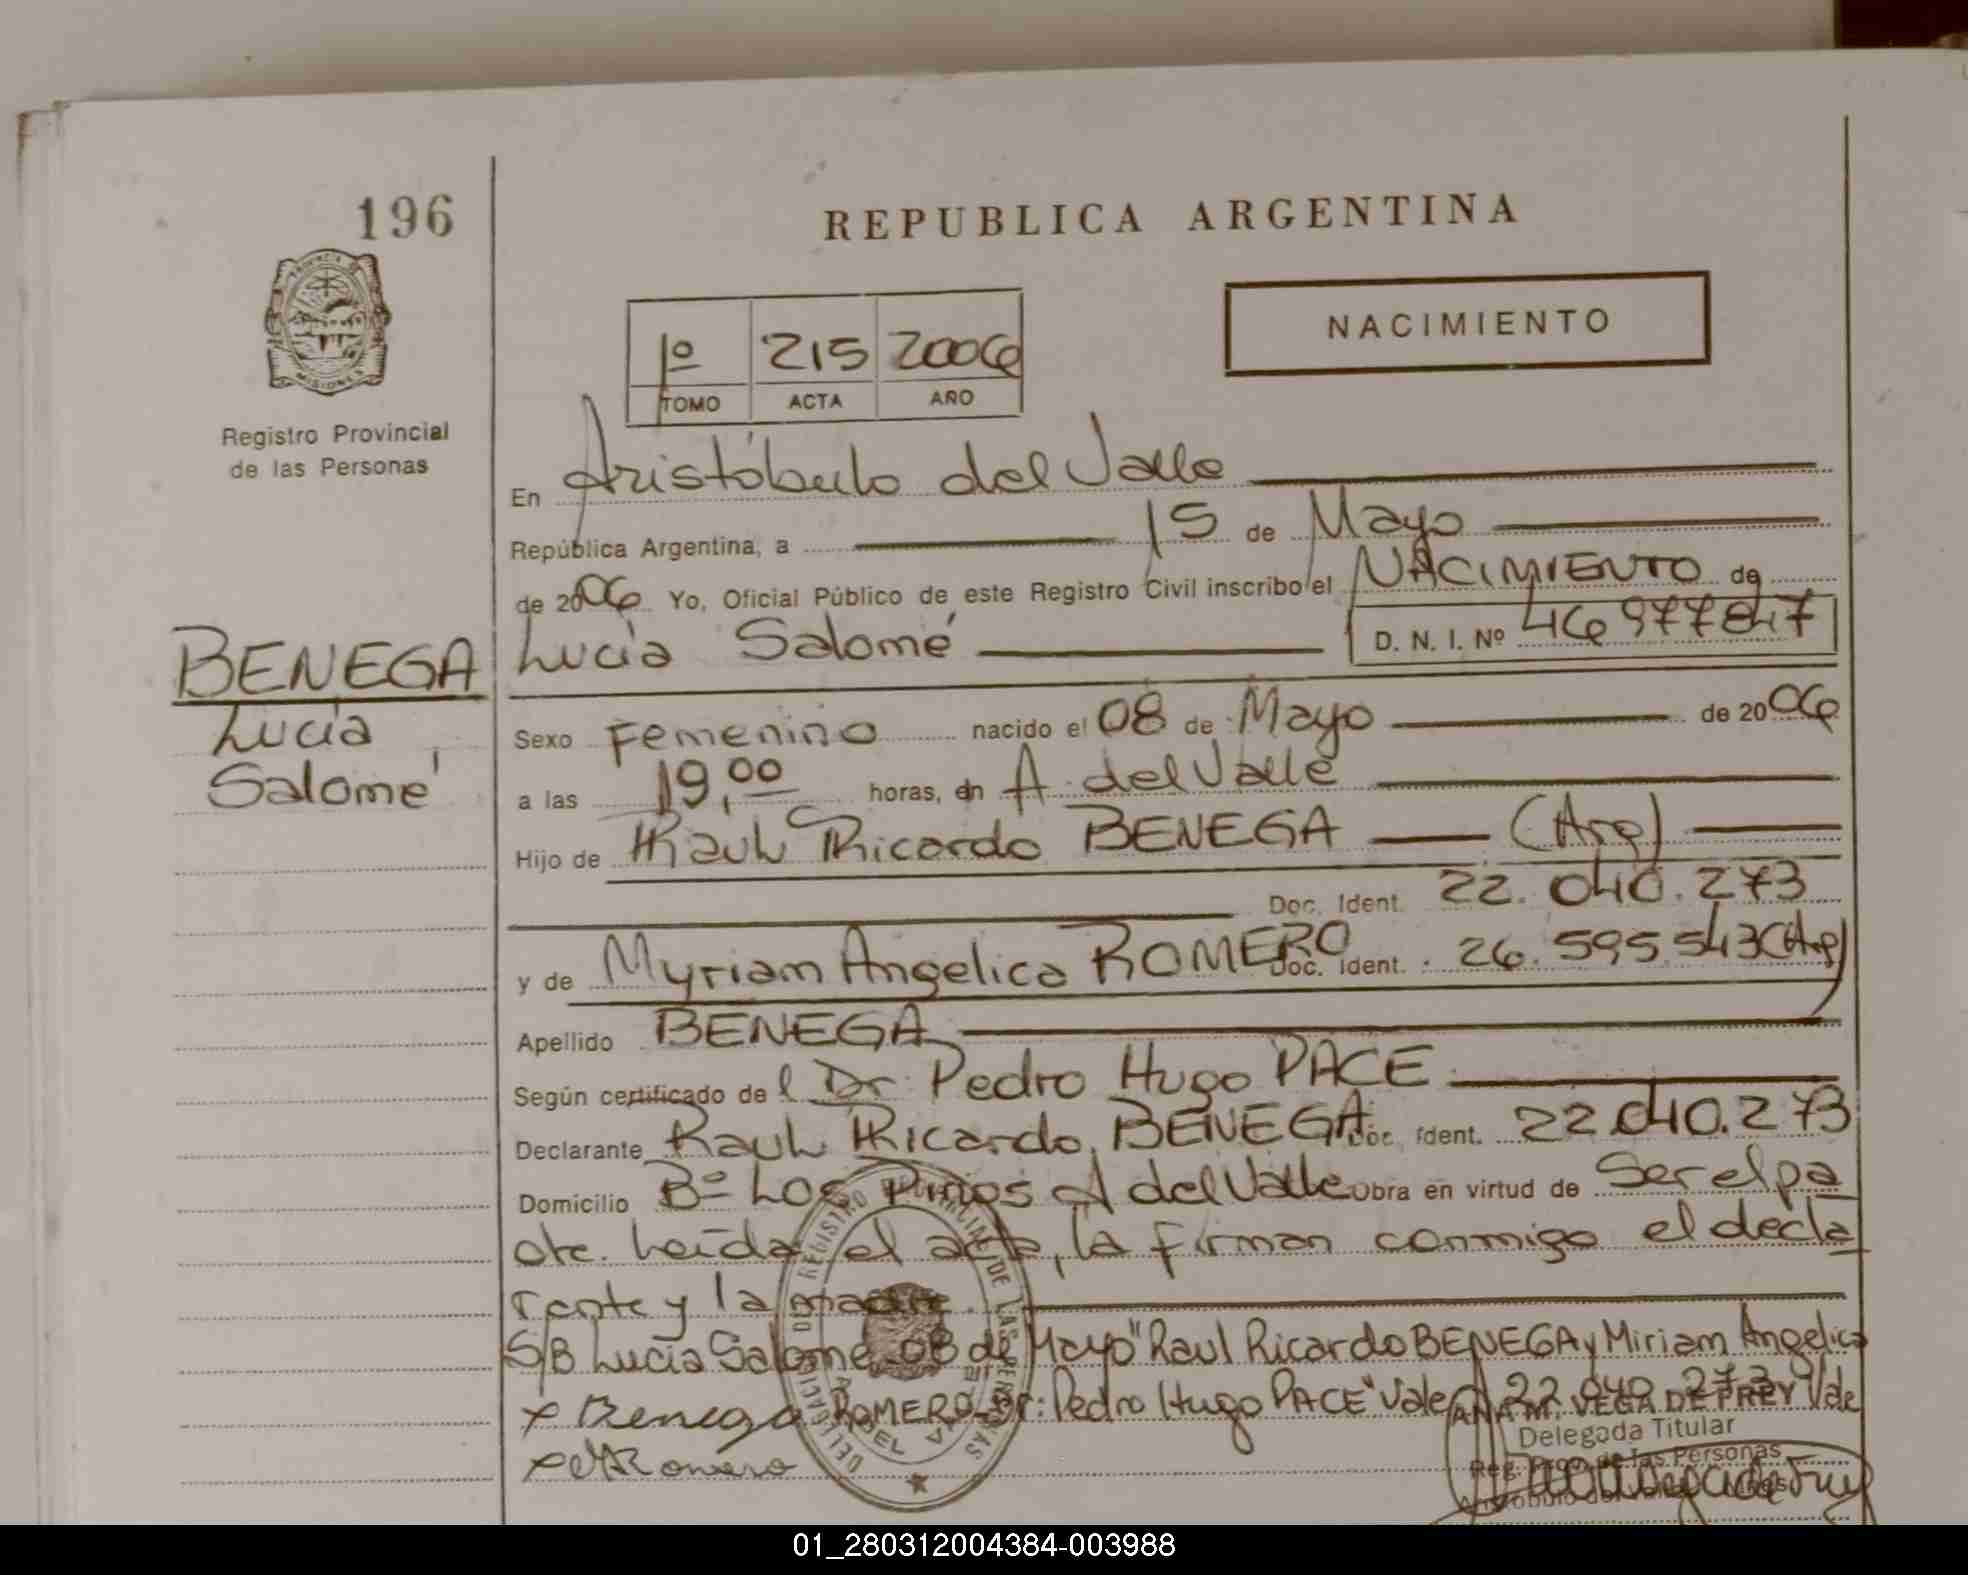 196
REPUBLICA ARGENTINA
PROVINCIA DE
MISIONES
Registro Provincial
de las Personas
1º 215 2006
TOMO ACTA AÑO
NACIMIENTO
En Aristóbulo del Valle
República Argentina, a 15 de Mayo
de 2006 Yo, Oficial Público de este Registro Civil inscribo el NACIMIENTO de
BENEGA
Lucía
Salomé
Lucía Salomé D. N. I. Nº 46977847
Sexo Femenino nacido el 08 de Mayo de 2006
a las 19,00 horas, en A. del Valle
Hijo de Raul Ricardo BENEGA (Arg)
Doc. Ident. 22.040.273
y de Myriam Angelica ROMERO Doc. Ident. 26.595.543 (Arg)
Apellido BENEGA
Según certificado de l Dr. Pedro Hugo PACE
Declarante Raul Ricardo BENEGA Doc. Ident. 22.040.273
Domicilio Bº Los Pinos A del Valle Obra en virtud de Ser el pa
dre. Leída el acta, la firman conmigo el decla
rante y la madre.
S/B Lucía Salomé 08 de Mayo" Raul Ricardo BENEGA y Miriam Angelica
x Benega ROMERO Dr: Pedro Hugo PACE" Vale 22.040.273 Vale
x M Romero
ANA M. VEGA DE FREY
Delegada Titular
Reg. Prov. de las Personas
01_280312004384-003988